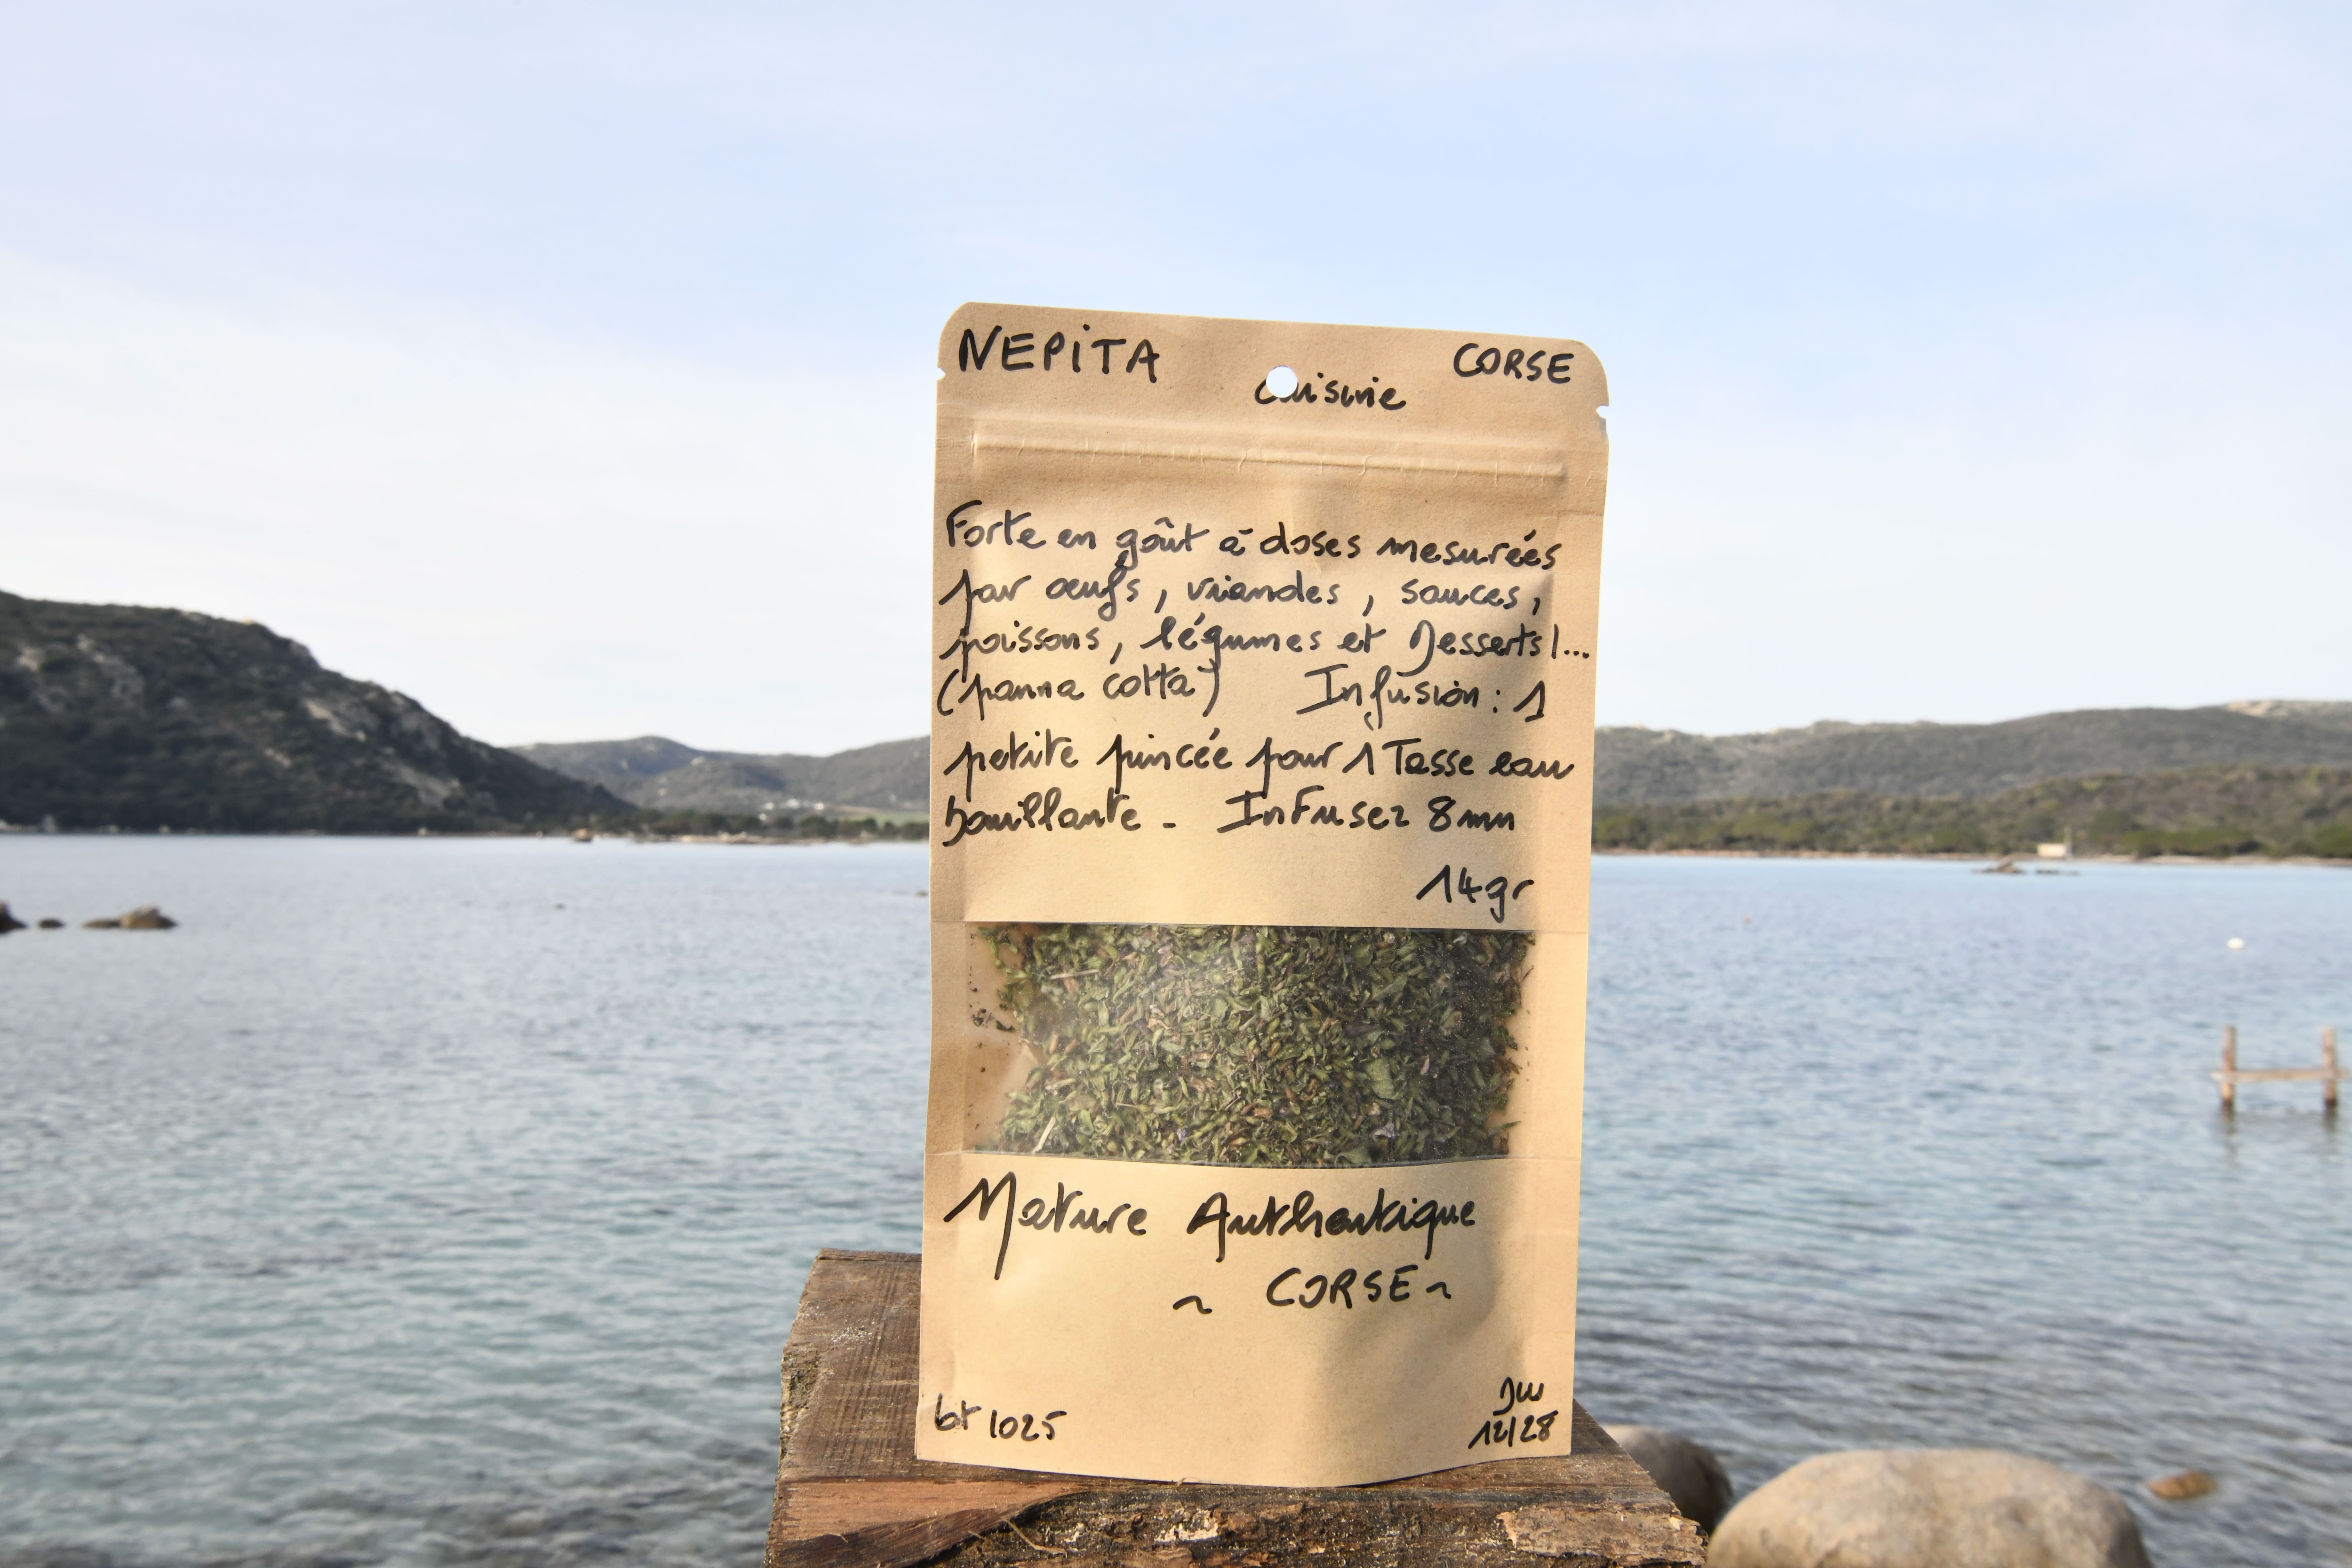 NEPITA CORSE
cuisine
Forte en goût à doses mesurées
par œufs, viandes, sauces,
poissons, légumes et Desserts!...
(panna cotta) Infusion: 1
petite pincée pour 1 Tasse eau
bouillante - Infusez 8mn
14gr
Nature Authentique
~ CORSE ~
1025
12/28